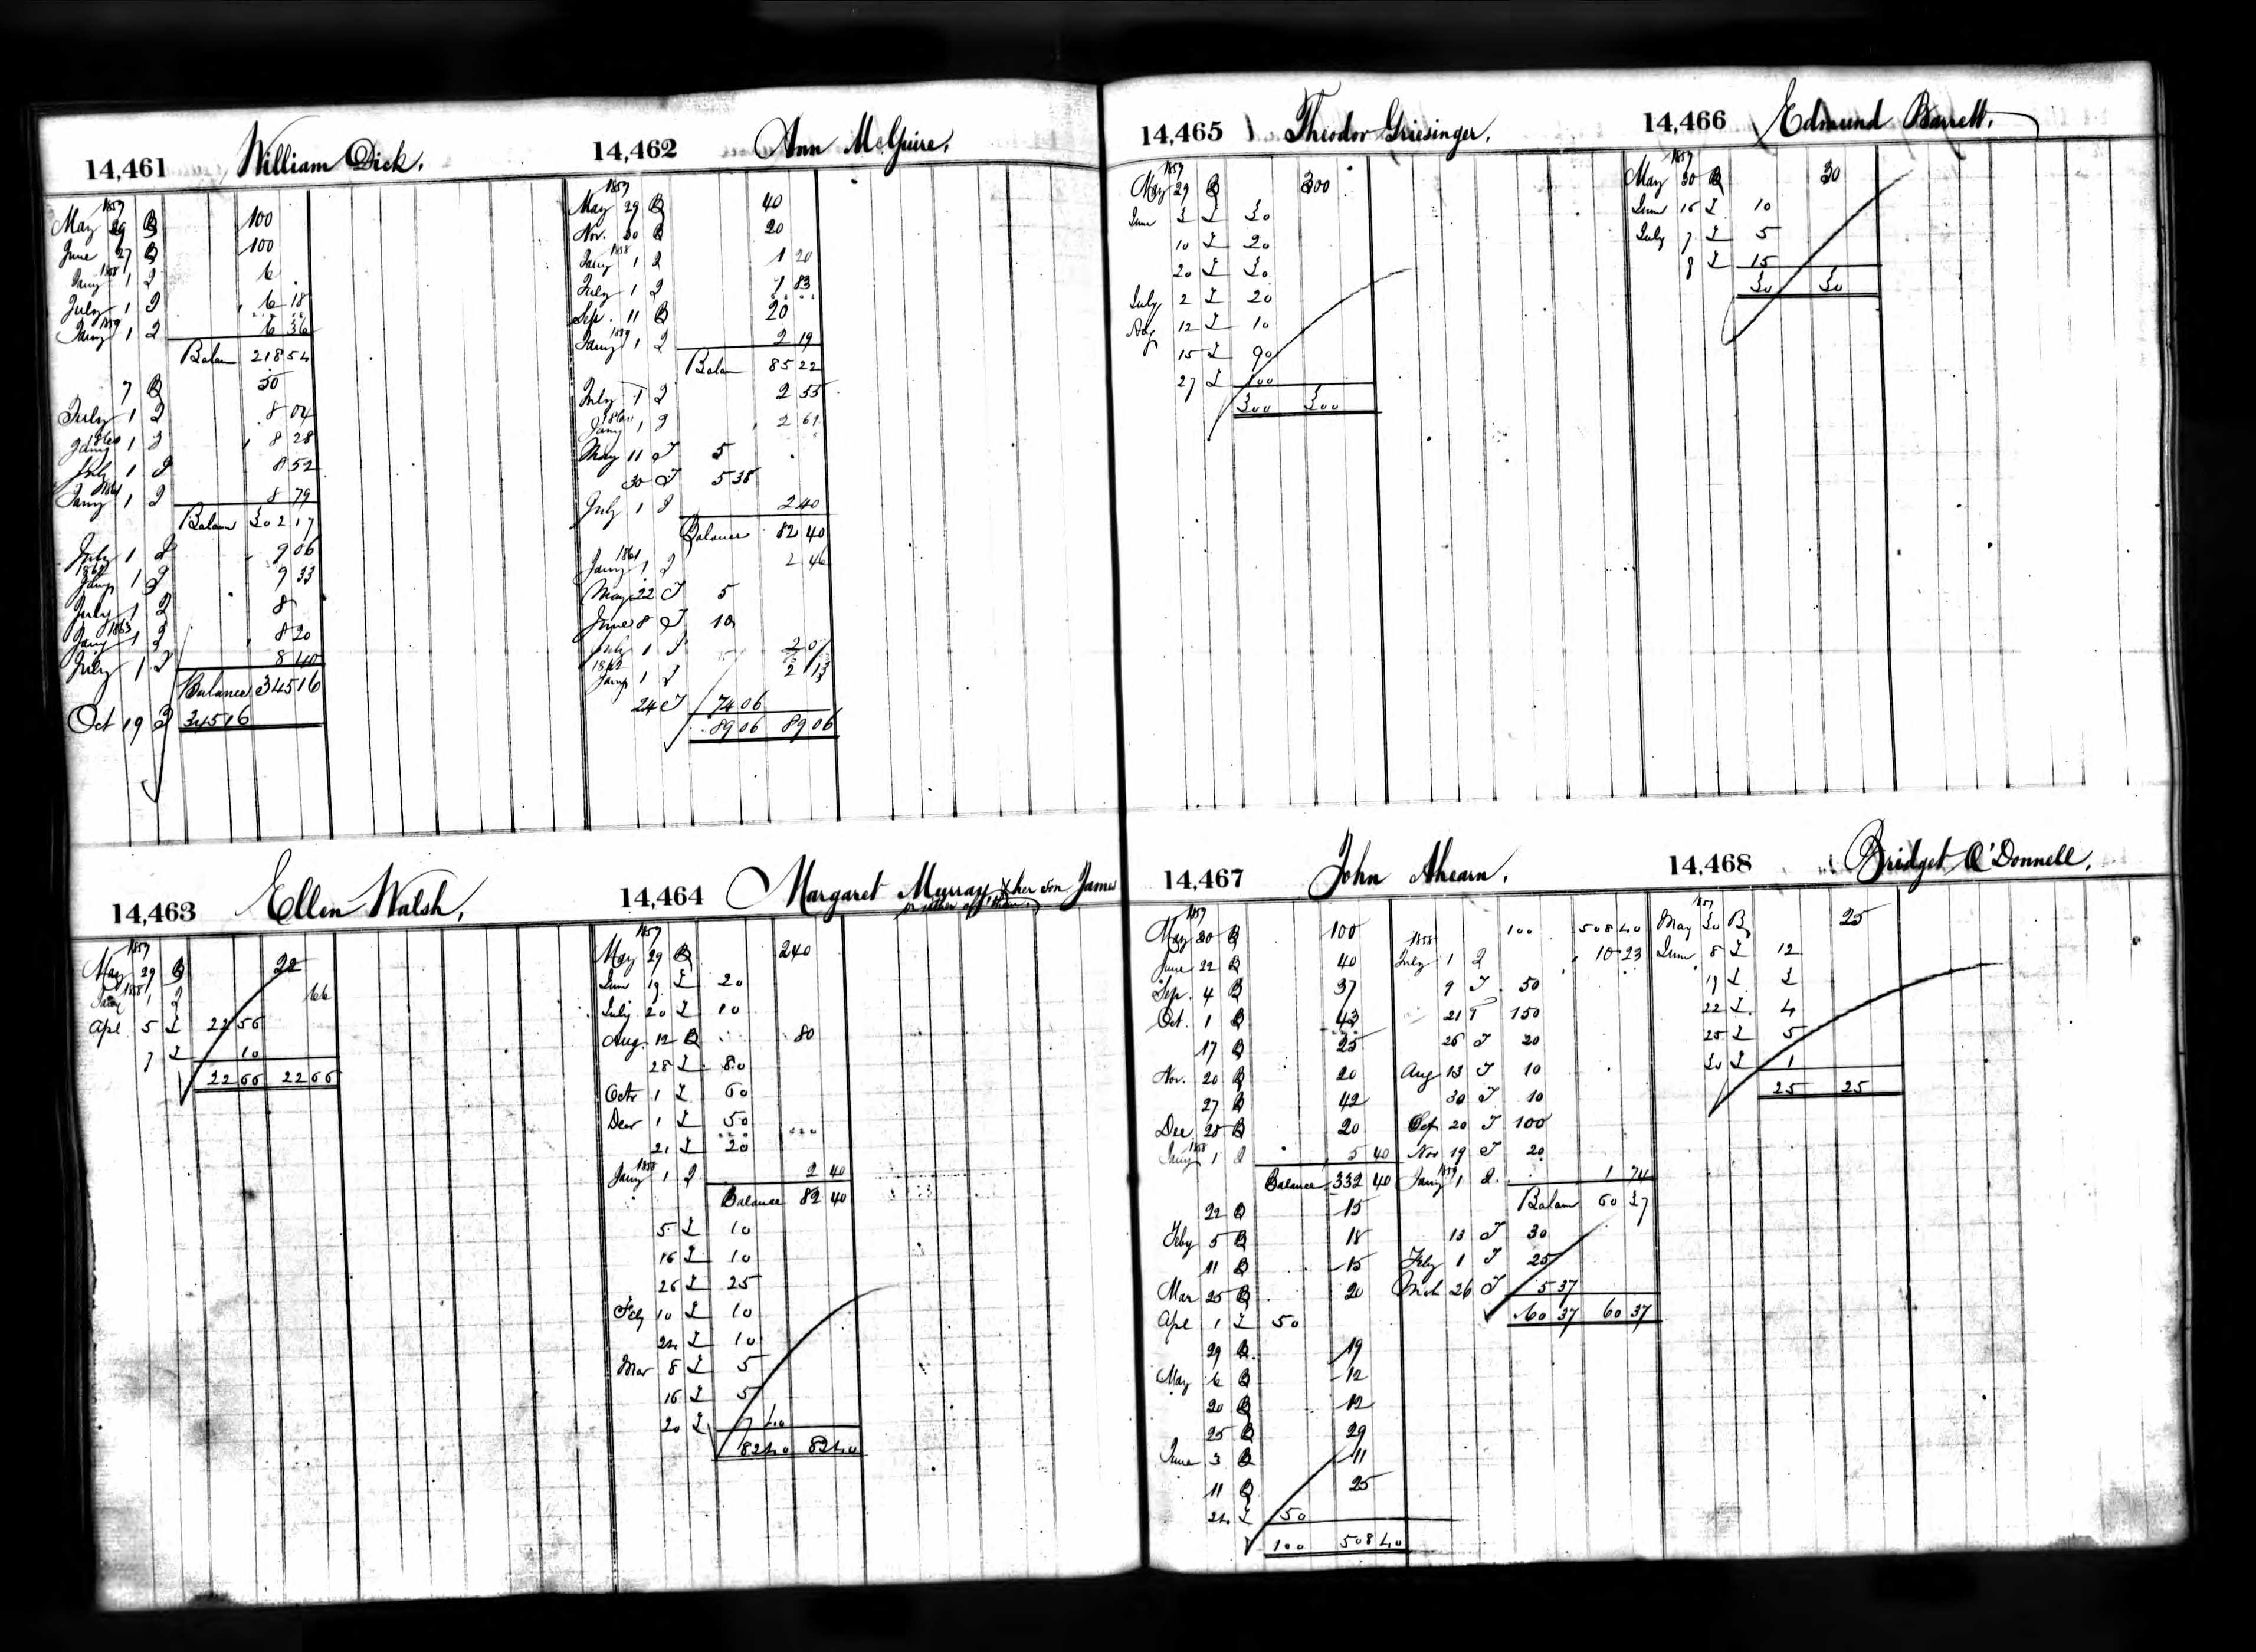 14,461 William Dick.
1857
May 29 B 100
June 27 B 100
1858
Jany 1 2 6
July 1 2 6 18
1859
Jany 1 2 6 36
Balan 218 54
7 B 50
July 1 2 8 04
1860
Jany 1 2 8 28
July 1 2 8 52
1861
Jany 1 2 8 79
Balan 302 17
July 1 2 9 06
1862
Jany 1 2 9 33
July 1 2 8
1863
Jany 1 2 8 20
July 1 2 8 40
Balance 345 16
Oct 19 345 16
14,462 Ann McGuire.
1857
May 29 B 40
Nov. 30 B 20
1858
Jany 1 2 1 20
July 1 2 1 83
Sep. 11 B 20
1859
Jany 1 2 2 19
Balan 85 22
July 1 2 2 55
1860
Jany 1 2 2 61
May 11 T 5
30 T 5 38
July 1 2 2 40
Balance 82 40
1861
Jany 1 2 2 46
May 22 T 5
June 8 T 10
July 1 2 2 07
1862
Jany 1 2 2 13
24 T 74 06
89 06 89 06
14,463 Ellen Walsh.
1857
May 29 B 22
1858
Jany 1 2 66
Apl 5 T 22 56
7 T 10
22 66 22 66
14,464 Margaret Murray & her son James
or either of them
1857
May 29 B 240
June 19 T 20
July 20 T 10
Aug. 12 B 80
28 T 80
Octr 1 T 60
Decr 1 T 50
21 T 20
1858
Jany 1 2 2 40
Balance 82 40
5 T 10
16 T 10
26 T 25
Feby 10 T 10
24 T 10
Mar 8 T 5
16 T 5
20 T 7 40
82 40 82 40
14,465 Theodor Griesinger.
1857
May 29 B 300
June 3 T 30
10 T 20
20 T 30
July 2 T 20
Aug 12 T 10
15 T 90
27 T 100
300 300
14,466 Edmund Barrett.
1857
May 30 B 30
June 16 T 10
July 7 T 5
8 T 15
30 30
14,467 John Ahearn.
1857
May 30 B 100
June 22 B 40
Sep. 4 B 37
Oct. 1 B 43
17 B 25
Nov. 20 B 20
27 B 42
Dec 28 B 20
1858
Jany 1 2 5 40
Balance 332 40
22 B 15
Feby 5 B 18
11 B 15
Mar 25 B 20
Apl 1 T 50
29 B 19
May 6 B 12
20 B 12
25 B 29
June 3 B 11
11 B 25
24 T 50
100 508 40
100 508 40
1858
July 1 2 10 23
9 T 50
21 T 150
26 T 20
Aug 13 T 10
30 T 10
Sep 20 T 100
Nov 19 T 20
1859
Jany 1 2 1 74
Balan 60 37
13 T 30
Feby 1 T 25
Mch 26 T 5 37
60 37 60 37
14,468 Bridget O'Donnell.
1857
May 30 B 25
June 8 T 12
19 T 3
22 T 4
25 T 5
30 T 1
25 25